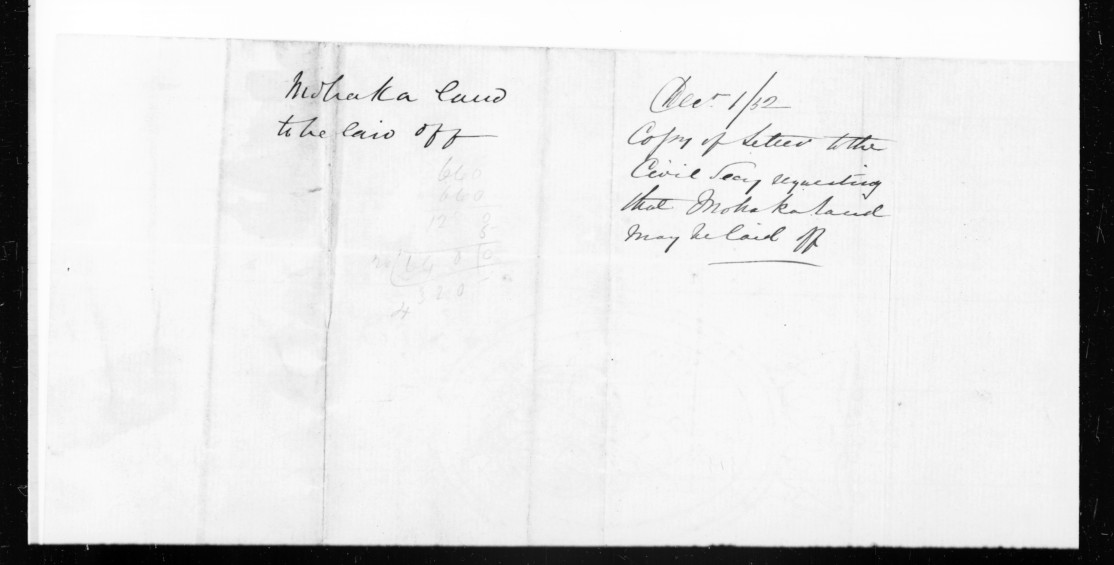 Mohaka land
to be laid off
660
660
Decr 1/52
Copy of Letter to the
Civil Secy requesting
that Mohaka land
may be laid off